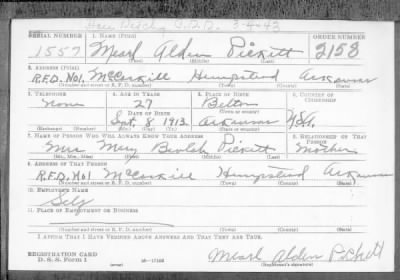 3-4-43
SERIAL NUMBER 1. NAME (Print) ORDER NUMBER
1557 Mearl Alden Pickett 2158
2. ADDRESS (Print)
R.F.D. No1. McCaskill Hempstead Arkansas
(Number and street or R. F. D. number) (Town) (County) (State)
3. TELEPHONE 4. AGE IN YEARS 5. PLACE OF BIRTH 6. COUNTRY OF CITIZENSHIP
None 27 Belton
DATE OF BIRTH (Town or county)
Sept. 8 1913 Arkansas U.S.A.
(Exchange) (Number) (Mo.) (Day) (Yr.) (State or country)
7. NAME OF PERSON WHO WILL ALWAYS KNOW YOUR ADDRESS 8. RELATIONSHIP OF THAT PERSON
Mrs. Mary Beulah Pickett Mother
(Mr., Mrs., Miss) (First) (Middle) (Last)
9. ADDRESS OF THAT PERSON
R.F.D. No1 McCaskill Hempstead Arkansas
(Number and street or R. F. D. number) (Town) (County) (State)
10. EMPLOYER'S NAME
Self
11. PLACE OF EMPLOYMENT OR BUSINESS
(Number and street or R. F. D. number) (Town) (County) (State)
I AFFIRM THAT I HAVE VERIFIED ABOVE ANSWERS AND THAT THEY ARE TRUE.
REGISTRATION CARD
D. S. S. Form 1 (over) 16—17105 Mearl Alden Pickett
(Registrant's signature)